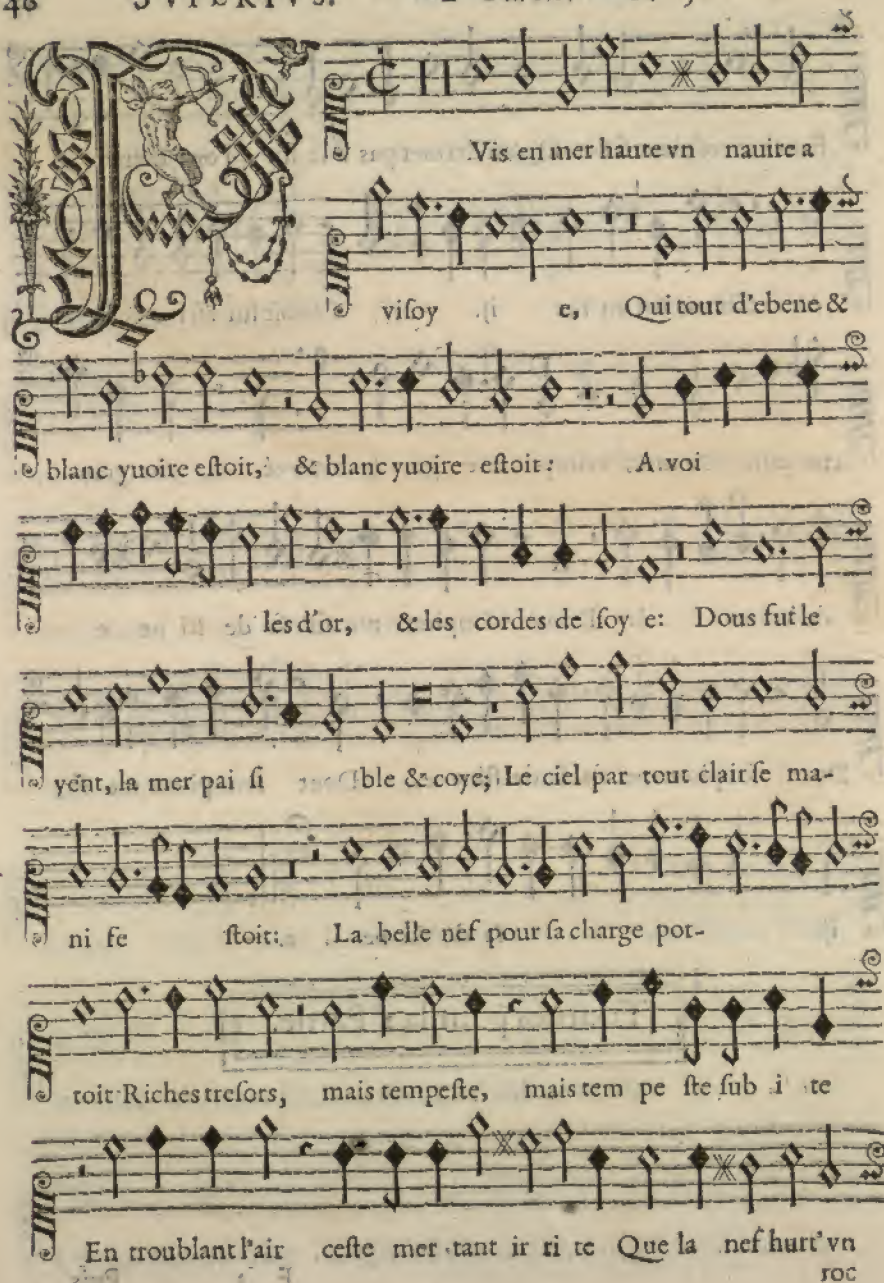 48 SVPERIVS.
P Vis en mer haute vn nauire a
uiſoy .ij. e, Qui tout d'ebene &
blanc yuoire eſtoit, & blanc yuoire eſtoit: A voi
les d'or, & les cordes de ſoy e: Dous fut le
vent, la mer pai ſi ble & coye; Le ciel par tout clair ſe ma-
ni fe ſtoit: La belle nef pour ſa charge por-
toit Riches treſors, mais tempeſte, mais tem pe ſte ſub i te
En troublant l'air ceſte mer tant ir ri te Que la nef hurt' vn
roc